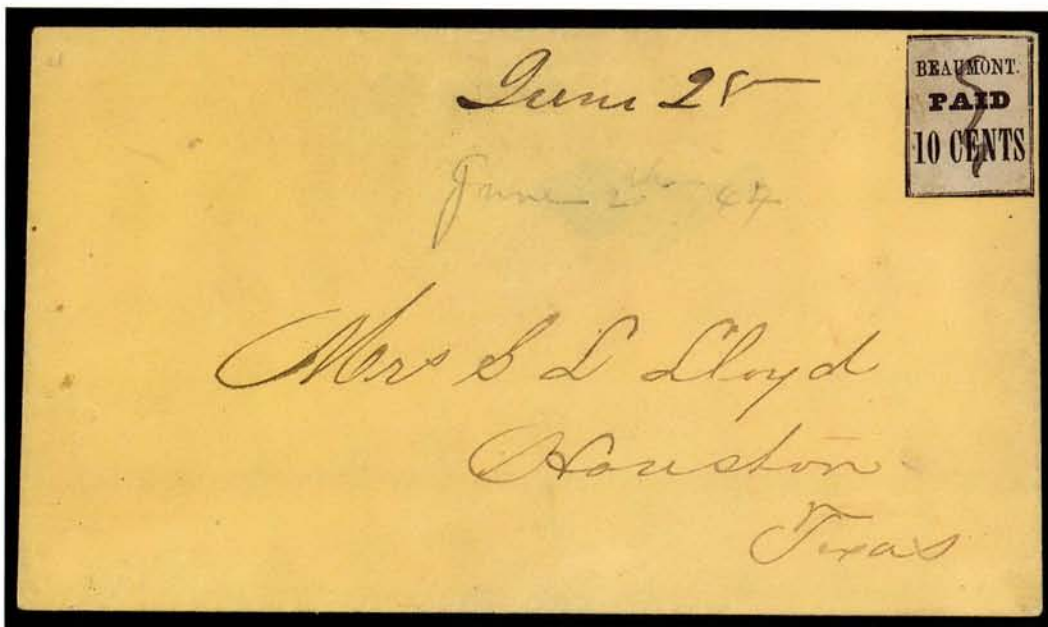 June 28
BEAUMONT.
PAID
10 CENTS
June 64
Mrs S L Lloyd
Houston
Texas